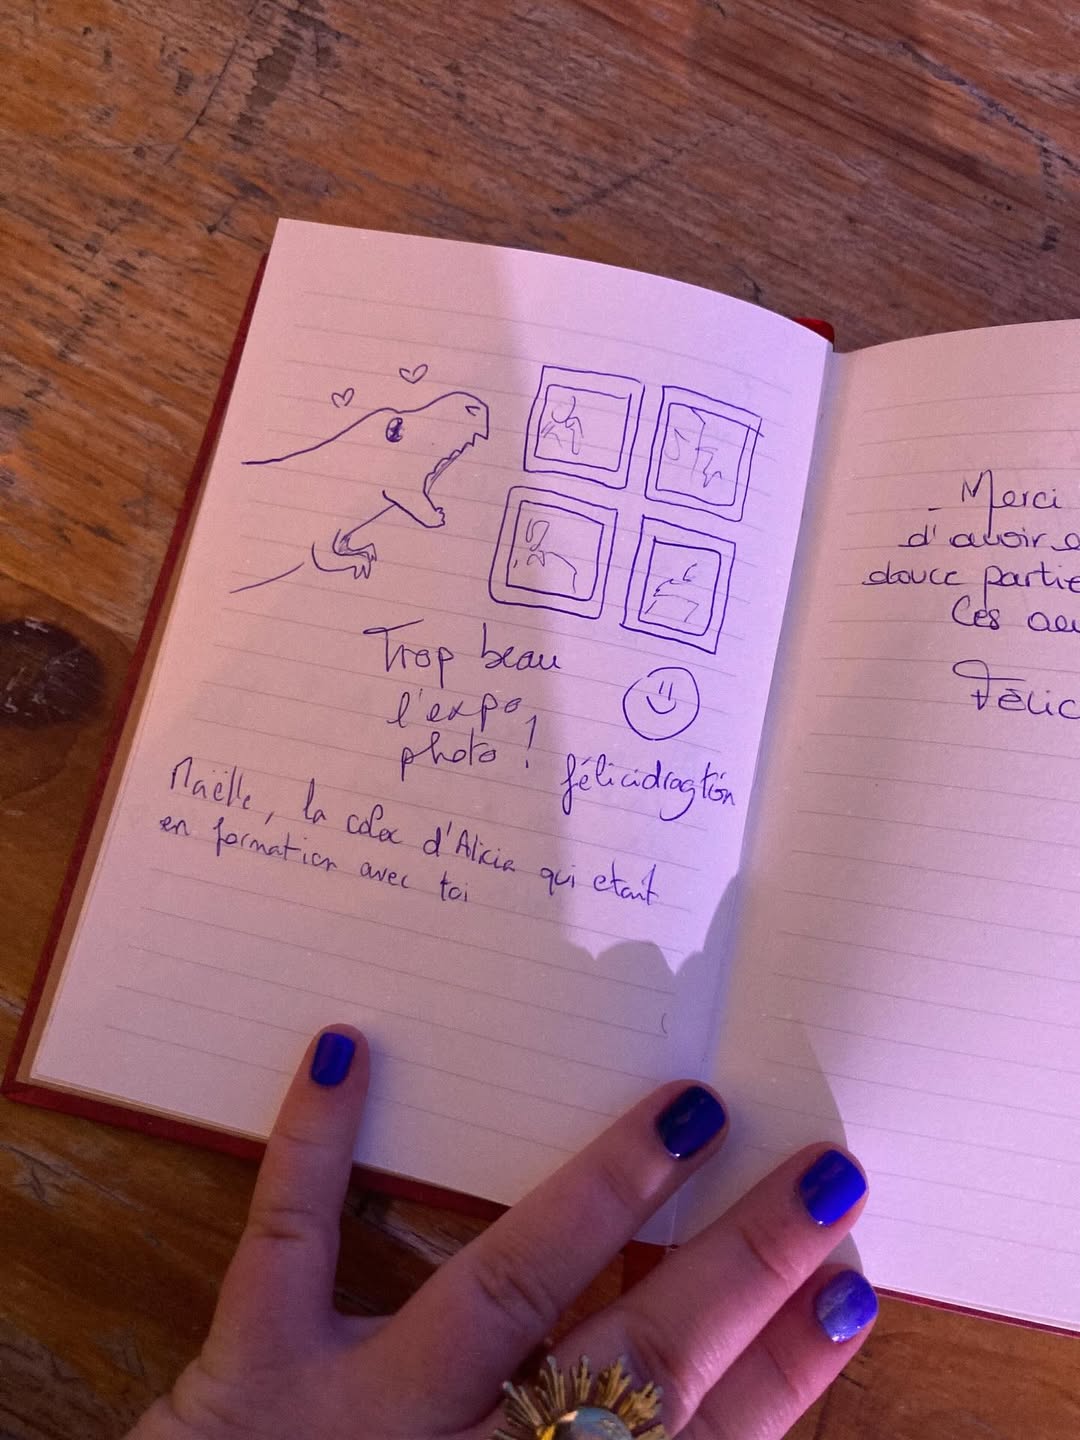 Trop beau
l'expo
photo !
félicidragtón
Maëlle, la coloc d'Alicia qui etait
en formation avec toi
Merci
d'avoir
douce partie
Ces